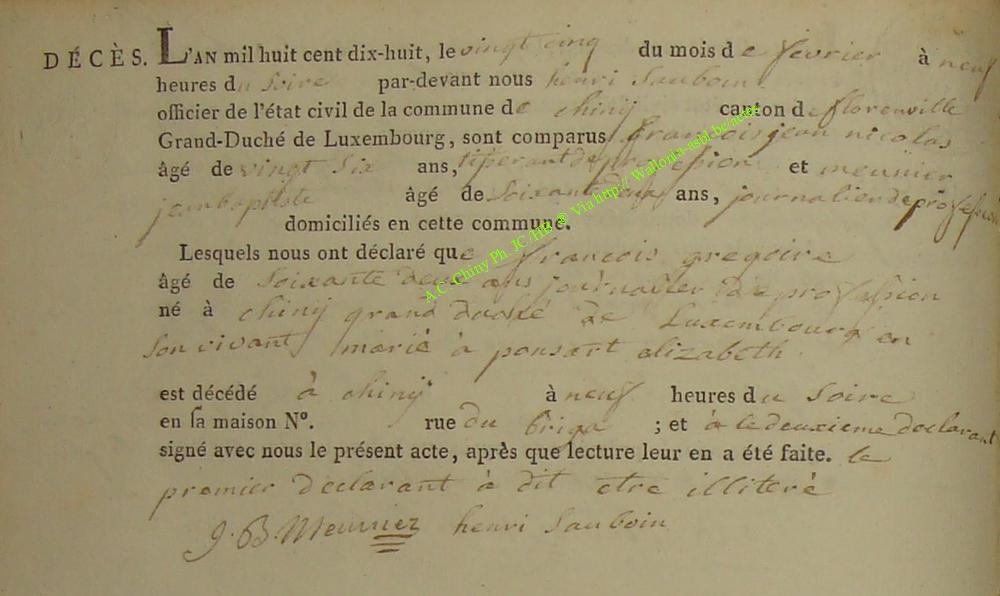 DÉCÈS. L'AN mil huit cent dix-huit, le vingt cinq du mois de fevrier à neuf
heures du Soire par-devant nous henri Sauboin
officier de l'état civil de la commune de chinÿ canton de florenville
Grand-Duché de Luxembourg, sont comparus françois jean nicolas
âgé de vingt six ans, de profession et meunier
jeanbaptiste âgé de Soixante deux ans, journalier de profession
domiciliés en cette commune.
Lesquels nous ont déclaré que françois gregoire
âgé de Soixante deux ans journalier de profession
né à chinÿ grand duché de Luxembourg en
son vivant marié à ponsart elizabeth
est décédé à chinÿ à neuf heures du Soire
en sa maison N°. rue du briga ; et à le deuxieme declarant
signé avec nous le présent acte, après que lecture leur en a été faite. le
premier declarant à dit etre illiteré
J. B. Meunier henri Sauboin
A.C. Chiny Ph. JC /HB ® Via http:// Wallonia-asbl.be/actes